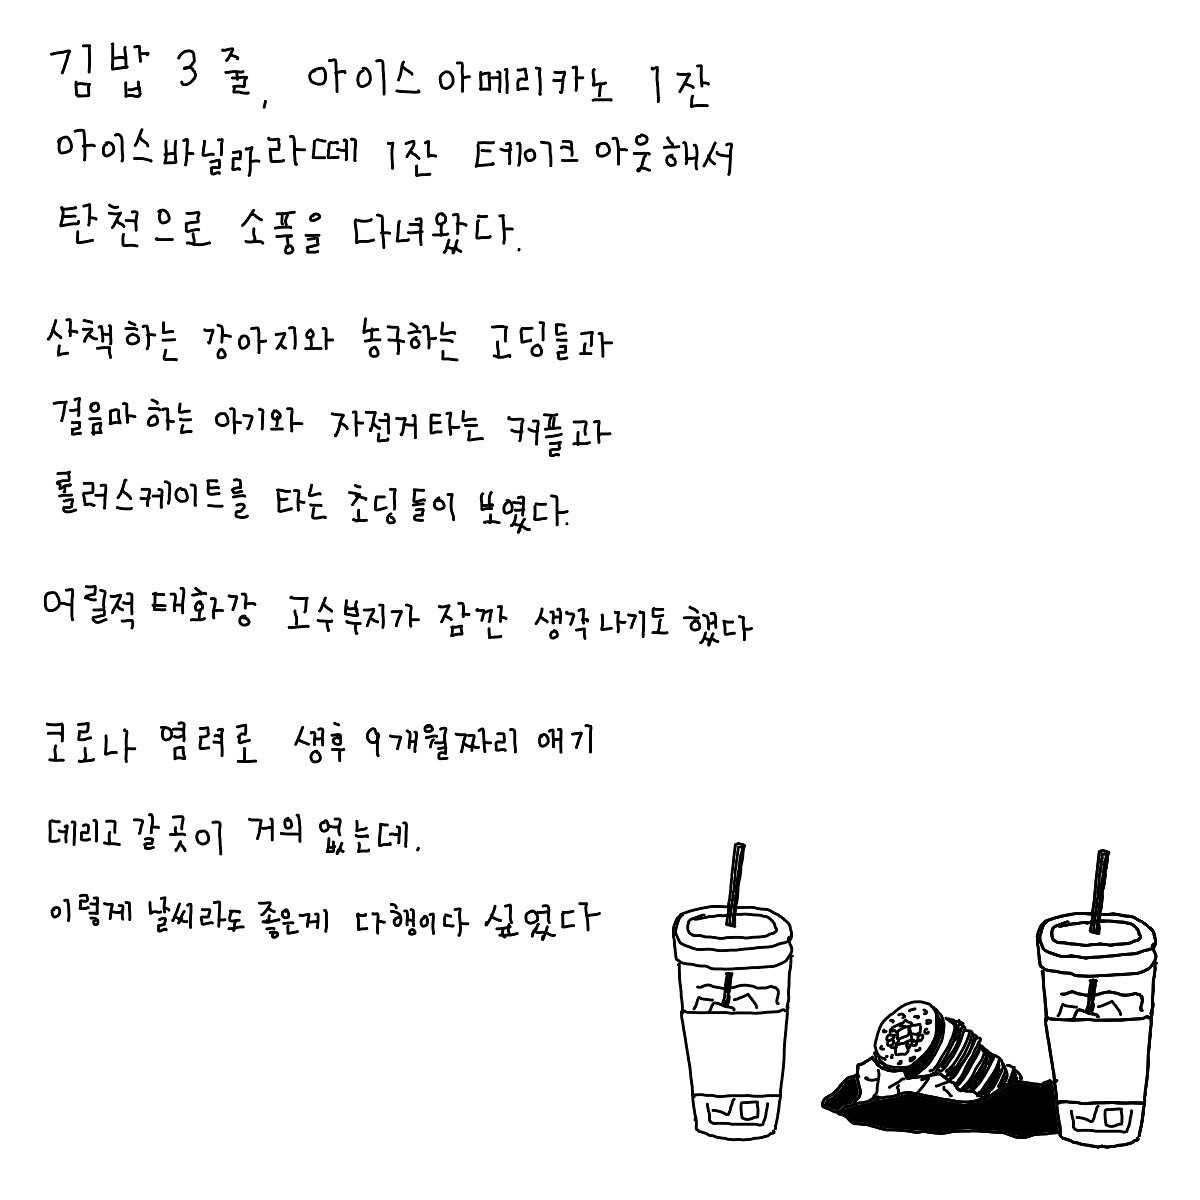 김밥 3줄, 아이스 아메리카노 1잔
아이스바닐라라떼 1잔 테이크 아웃해서
탄천으로 소풍을 다녀왔다.
산책하는 강아지와 농구하는 고딩들과
걸음마 하는 아기와 자전거타는 커플과
롤러스케이트를 타는 초딩들이 보였다.
어릴적 태화강 고수부지가 잠깐 생각나기도 했다
코로나 염려로 생후 9개월짜리 애기
데리고 갈곳이 거의 없는데.
이렇게 날씨라도 좋은게 다행이다 싶었다